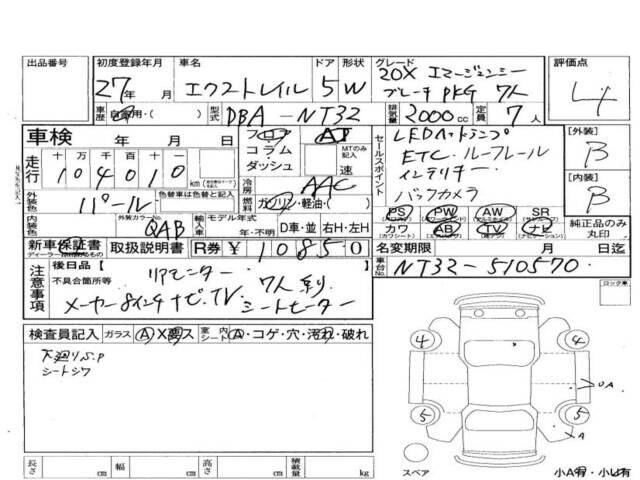 出品番号
初度登録年月
27年 月
車名
エクストレイル
ドア 形状
5 W
グレード
20X エマージェンシー
ブレーキ PKG 7人
評価点
4
車歴 自家用・( )
型式 DBA - NT32
排気量 2000 cc
定員 7人
車検 年 月 日
フロア
コラム
ダッシュ
AT
MTのみ記入
速
セールスポイント
LEDヘッドランプ
ETC・ルーフレール
インテリキー
バックカメラ
[外装]
B
[内装]
B
走行 十 万 千 百 十 一
104010 km
外装色 パール
色替車は色替と記入
冷房 AAC
燃料 ガソリン・軽油・( )
内装色
外装カラーNo. QAB
輸入車 モデル年式 年・不明
D車・並 右H・左H
PS PW AW SR
カワ AB TV ナビ
純正品のみ丸印
新車保証書
ディーラー
取扱説明書
R券 ¥10850
名変期限 月 日迄
注意事項
後日品【 】
不具合箇所等
リアモニター 7人乗り
メーカー8インチナビ・TV シートヒーター
車台No. NT32-510570
ロック車
検査員記入
ガラス A X 要 ス
室内シート A・コゲ・穴・汚れ・破れ
シートシワ
4
4
5
5
A
スペア
小A有・小U有
長さ cm
幅 cm
高さ cm
積載量 kg